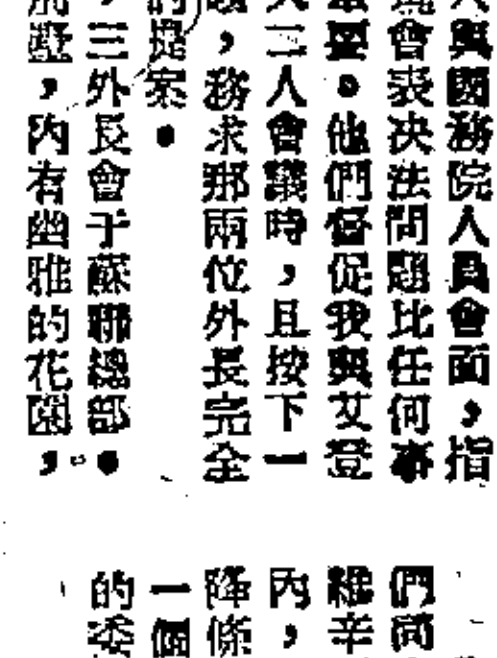 人與國務院人員會面，指
會表决法問題比任何事
要。他們督促我與艾登
二人會議時，且按下一
，務求那兩位外長完全
的提案。
，三外長會于蘇聯總部。
墅，內有幽雅的花園，
們商
雖辛
內，
降條
一個
的委